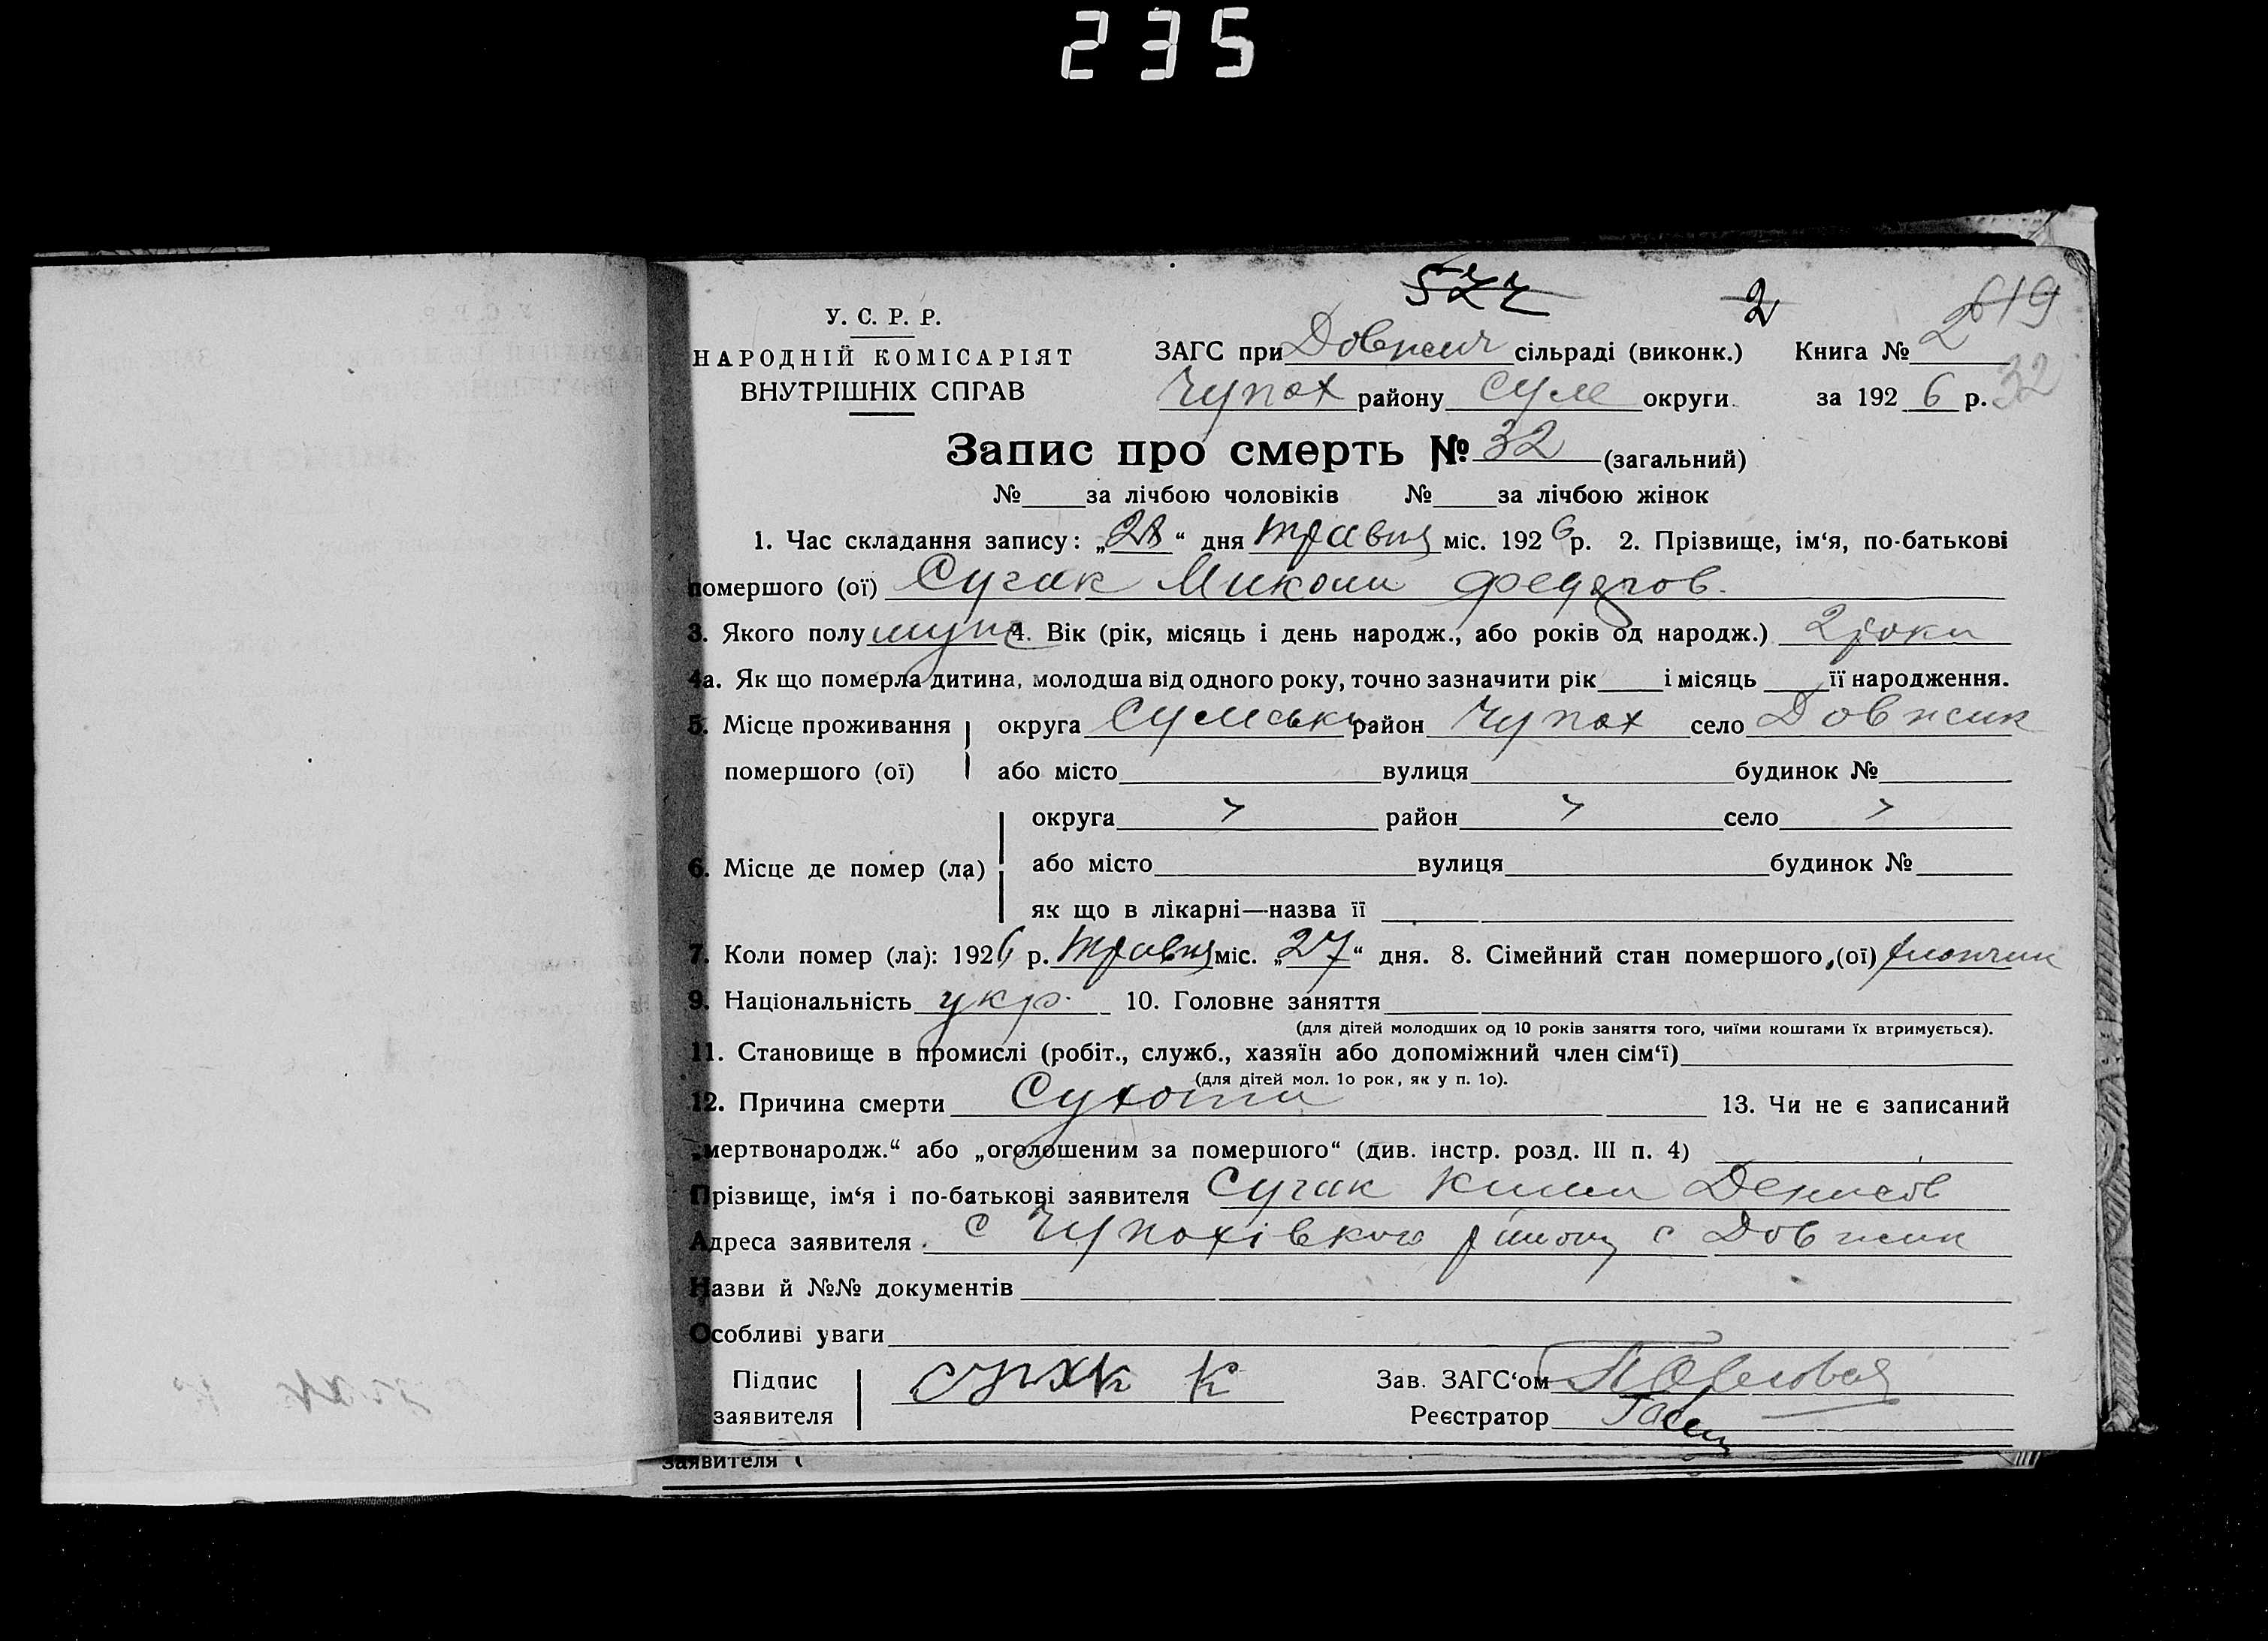 235
522
2
619
У. С. Р. Р.
НАРОДНІЙ КОМІСАРІЯТ
ВНУТРІШНІХ СПРАВ
ЗАГС при Довжик сільраді (виконк.) Книга № 2
Чупах району Сум округи за 1926 р. 32
Запис про смерть № 32 (загальний)
№ за лічбою чоловіків № за лічбою жінок
1. Час складання запису: „28“ дня травня міс. 1926 р. 2. Прізвище, ім‘я, по-батькові
помершого (ої) Сугак Микола Федоров.
3. Якого полу муж 4. Вік (рік, місяць і день народж., або років од народж.) 2 роки
4а. Як що померла дитина, молодша від одного року, точно зазначити рік і місяць її народження.
5. Місце проживання округа Сумська район Чупах село Довжик
помершого (ої) або місто вулиця будинок №
округа » район » село »
6. Місце де помер (ла) або місто вулиця будинок №
як що в лікарні—назва її
7. Коли помер (ла): 1926 р. травня міс. „27“ дня. 8. Сімейний стан помершого (ої) хлопчик
9. Національність укр. 10. Головне заняття
(для дітей молодших од 10 років заняття того, чиїми коштами їх втримується).
11. Становище в промислі (робіт., служб., хазяїн або допоміжний член сім‘ї)
(для дітей мол. 1о рок, як у п. 1о).
12. Причина смерти Сухоти 13. Чи не є записаний
„мертвонародж.“ або „оголошеним за помершого“ (див. інстр. розд. III п. 4)
Прізвище, ім‘я і по-батькові заявителя Сугак Денисов
Адреса заявителя с Чупахівкого району с Довжик
Назви й №№ документів
Особливі уваги
Підпис
заявителя сугак к
Зав. ЗАГС‘ом
Реєстратор
заявителя